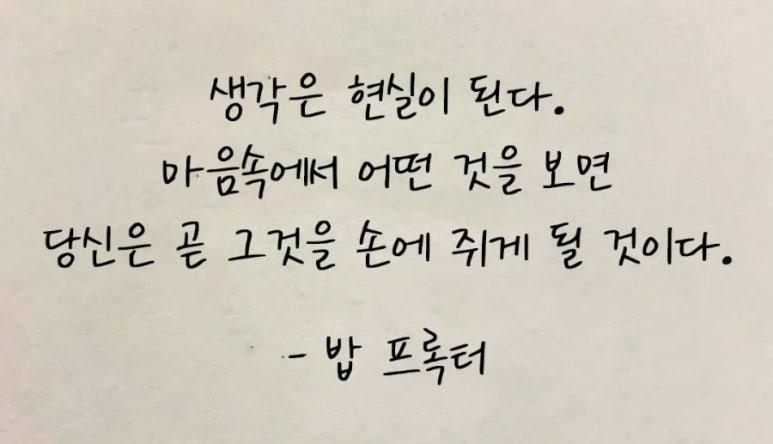 생각은 현실이 된다.
마음속에서 어떤 것을 보면
당신은 곧 그것을 손에 쥐게 될 것이다.
- 밥 프록터